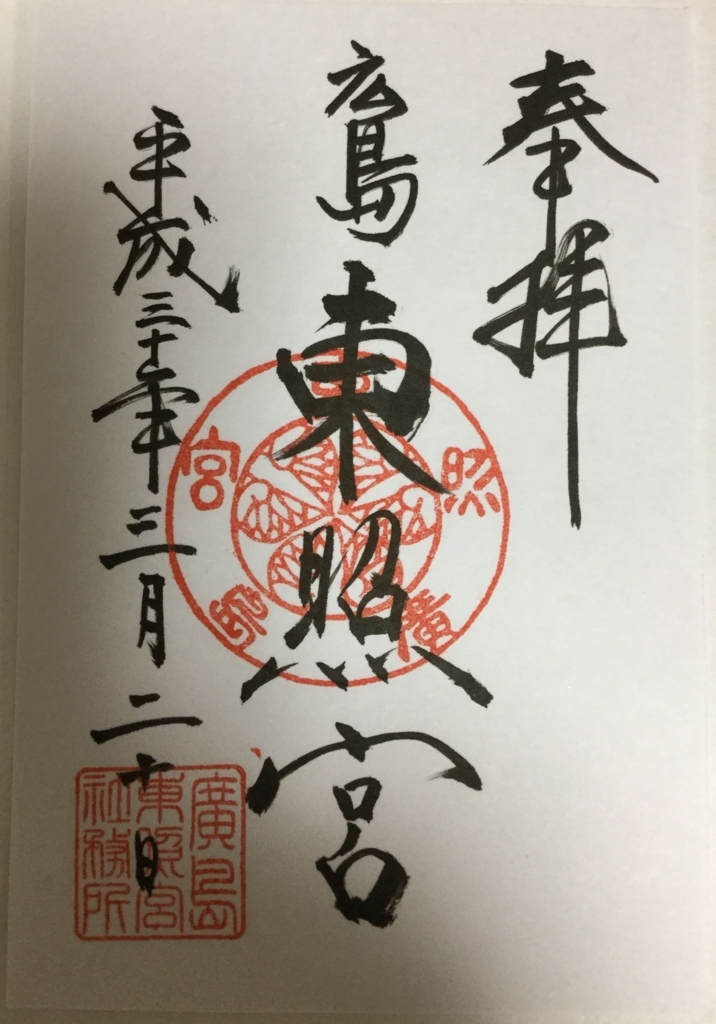 奉拝
広島東照宮
平成三十年三月二十日
東照宮廣島
廣島
東照宮
社務所